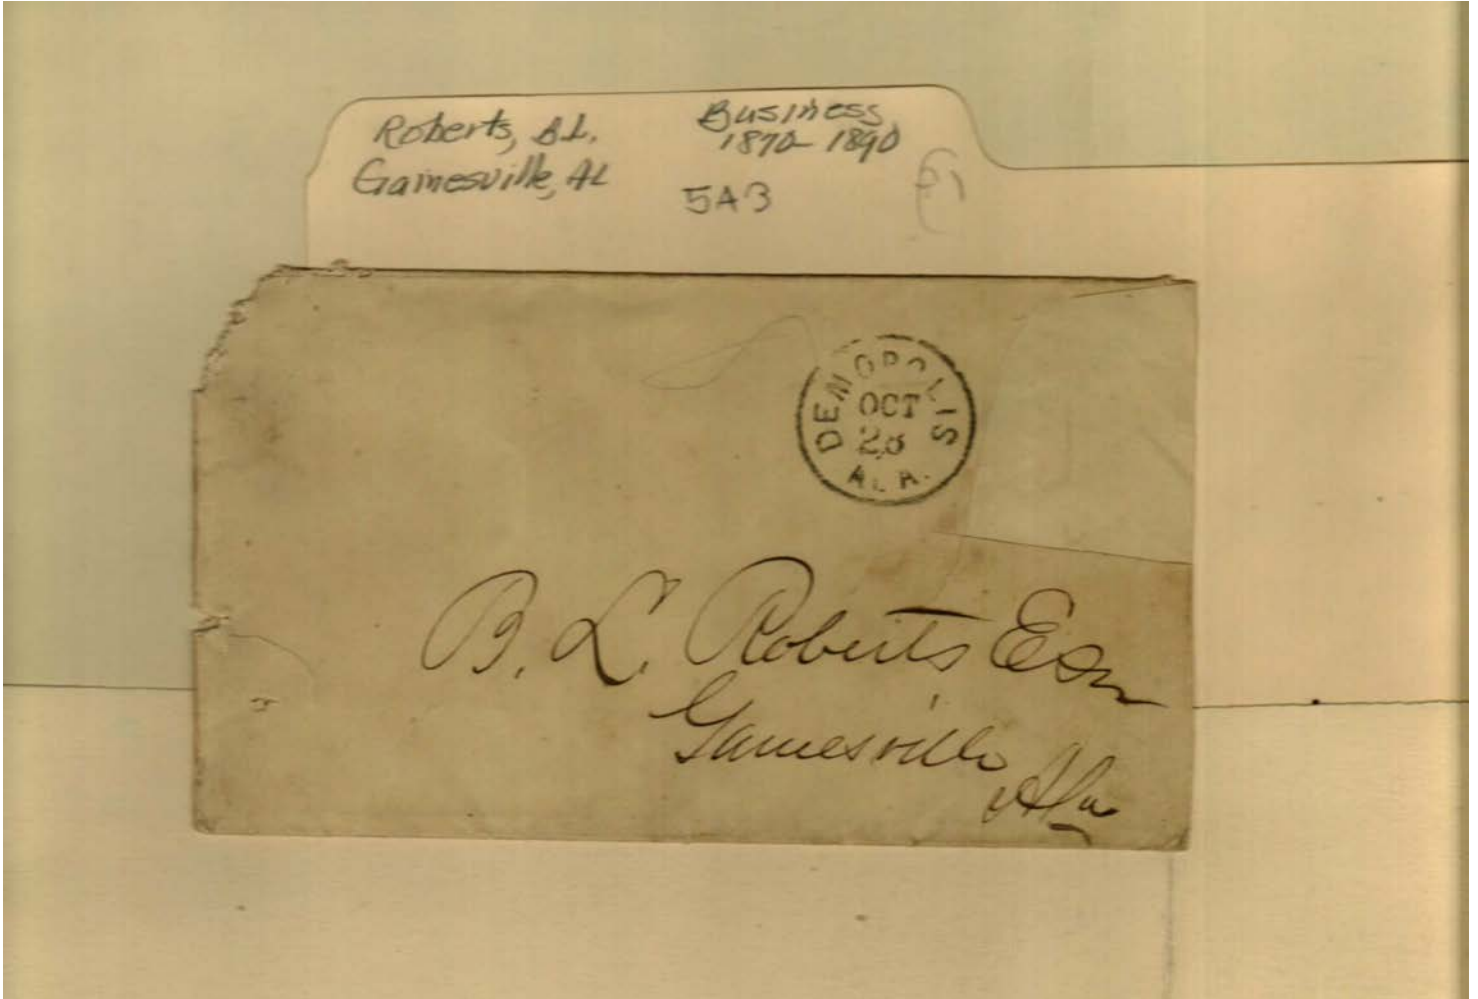 Roberts, B.L.
Gainesville, AL
Business
1870-1890
5A3
DEMOPOLIS
OCT
ALA.
B. L. Roberts Esq
Gainesville
Ala